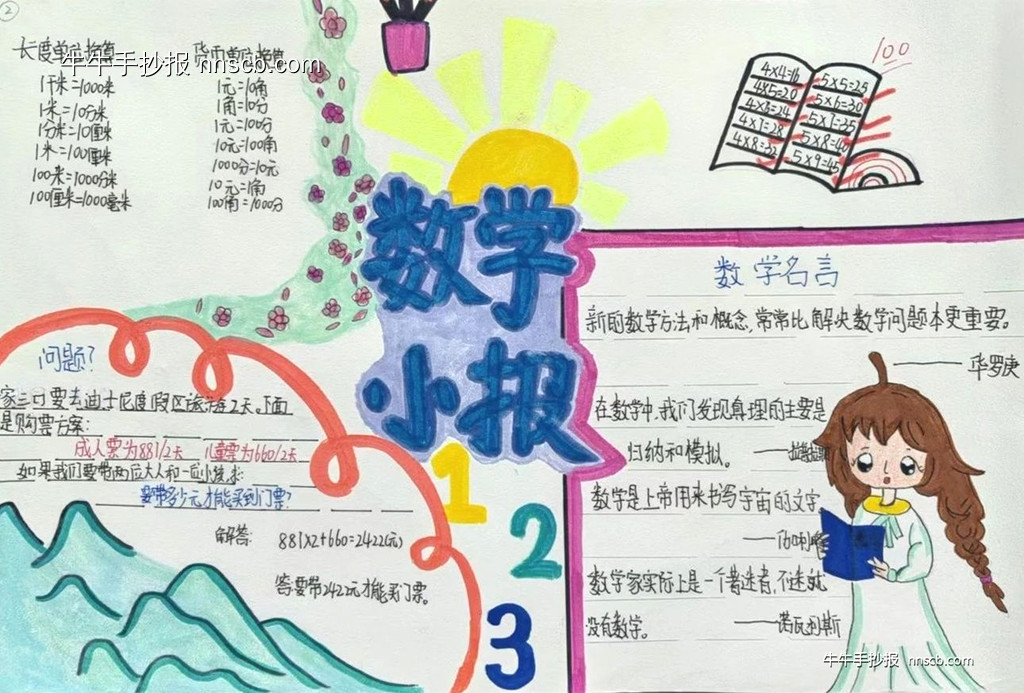 2
长度单位换算
货币单位换算
牛牛手抄报 nnscb.com
1千米=1000米
1米=10分米
1分米=10厘米
1米=100厘米
100米=1000分米
100厘米=1000毫米
1元=10角
1角=10分
1元=100分
10元=100角
1000分=10元
10元=1角
100角=1000分
100
4×4=16
4×5=20
4×6=24
4×7=28
4×8=32
5×5=25
5×6=30
5×7=35
5×8=40
5×9=45
数学
小报
1
2
3
问题?
家三口要去迪士尼度假区游海2天。下面
是购票方案:
成人票为881/2天 儿童票为660/2天
如果我们要带两位大人和一位小孩,求
要带多少元才能买到门票?
解答:
881×2+660=2422(元)
答:要带2422元才能买门票。
数学名言
新的数学方法和概念,常常比解决数学问题本更重要。
——华罗庚
在数学中,我们发现真理的主要是
归纳和模拟。
数学是上帝用来书写宇宙的文字。
——伽利略
数学家实际上是一个著迷者,不迷就
没有数学。
——诺瓦利斯
牛牛手抄报 nnscb.com